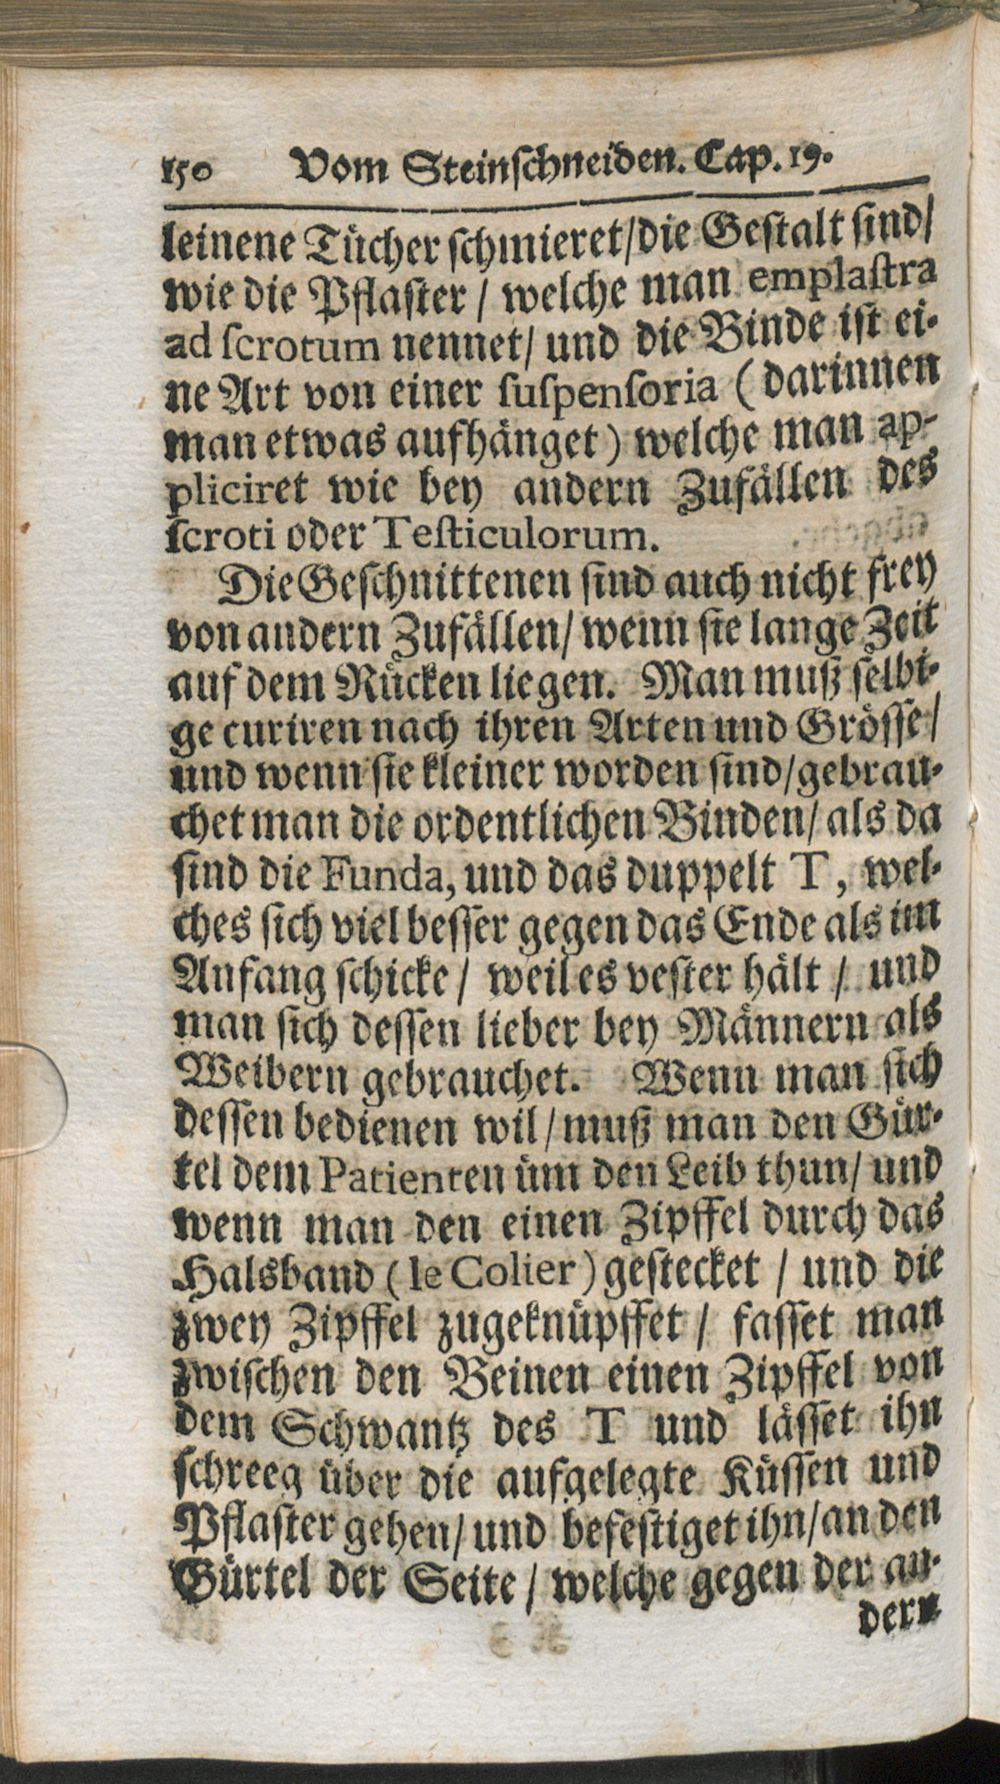 150 Vom Steinſchneiden. Cap. 19.
leinene Tücher ſchmieret/die Geſtalt ſind/
wie die Pflaſter / welche man emplaſtra
ad ſcrotum nennet/ und die Binde iſt ei-
ne Art von einer ſuſpenſoria (darinnen
man etwas aufhänget) welche man ap-
pliciret wie bey andern Zufällen des
ſcroti oder Teſticulorum.
Die Geſchnittenen ſind auch nicht frey
von andern Zufällen/ wenn ſie lange Zeit
auf dem Rücken liegen. Man muß ſelbi-
ge curiren nach ihren Arten und Gröſſe/
und wenn ſie kleiner worden ſind/gebrau-
chet man die ordentlichen Binden/ als da
ſind die Funda, und das duppelt T, wel-
ches ſich viel beſſer gegen das Ende als im
Anfang ſchicke/ weil es veſter hält / und
man ſich deſſen lieber bey Männern als
Weibern gebrauchet. Wenn man ſich
deſſen bedienen wil/muß man den Gür-
tel dem Patienten üm den Leib thun/ und
wenn man den einen Zipffel durch das
Halsband (le Colier) geſtecket / und die
zwey Zipffel zugeknüpffet / faſſet man
zwiſchen den Beinen einen Zipffel von
dem Schwantz des T und läſſet ihn
ſchreeg über die aufgelegte Küſſen und
Pflaſter gehen/ und befeſtiget ihn/an den
Gürtel der Seite / welche gegen der an-
dern